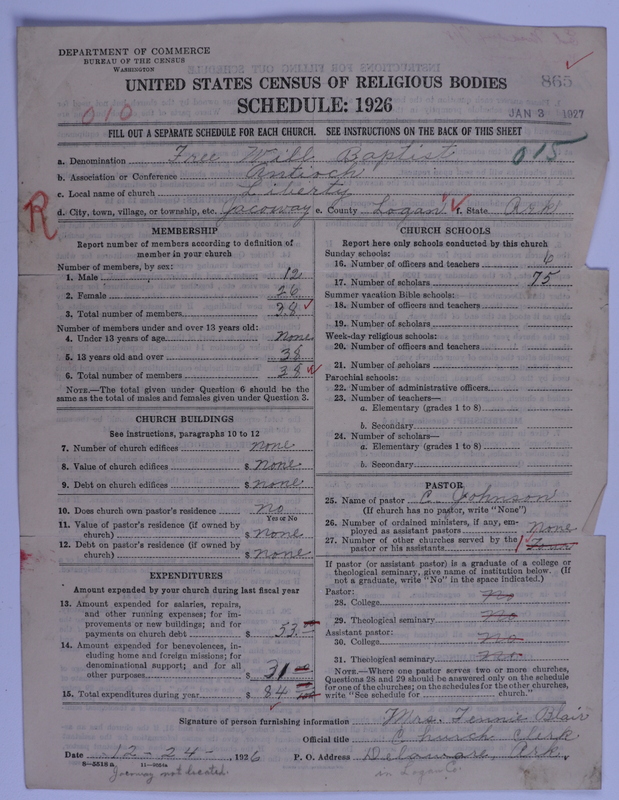 DEPARTMENT OF COMMERCE
BUREAU OF THE CENSUS
WASHINGTON
UNITED STATES CENSUS OF RELIGIOUS BODIES
865
SCHEDULE: 1926
JAN 3 1927
010
FILL OUT A SEPARATE SCHEDULE FOR EACH CHURCH. SEE INSTRUCTIONS ON THE BACK OF THIS SHEET
a. Denomination Free Will Baptist 015
b. Association or Conference Antioch
c. Local name of church Liberty
R d. City, town, village, or township, etc. Jacoway e. County Logan f. State Ark
MEMBERSHIP
Report number of members according to definition of
member in your church
Number of members, by sex:
1. Male 12
2. Female 26
3. Total number of members 38
Number of members under and over 13 years old:
4. Under 13 years of age None
5. 13 years old and over 38
6. Total number of members 38
NOTE.—The total given under Question 6 should be the
same as the total of males and females given under Question 3.
CHURCH BUILDINGS
See instructions, paragraphs 10 to 12
7. Number of church edifices none
8. Value of church edifices $ None
9. Debt on church edifices $ none
10. Does church own pastor's residence No
Yes or No
11. Value of pastor's residence (if owned by
church) $ none
12. Debt on pastor's residence (if owned by
church) $ none
EXPENDITURES
Amount expended by your church during last fiscal year
13. Amount expended for salaries, repairs,
and other running expenses; for im-
provements or new buildings; and for
payments on church debt $ 53.
14. Amount expended for benevolences, in-
cluding home and foreign missions; for
denominational support; and for all
other purposes $ 31
15. Total expenditures during year $ 84
CHURCH SCHOOLS
Report here only schools conducted by this church
Sunday schools:
16. Number of officers and teachers 6
17. Number of scholars 75
Summer vacation Bible schools:
18. Number of officers and teachers
19. Number of scholars
Week-day religious schools:
20. Number of officers and teachers
21. Number of scholars
Parochial schools:
22. Number of administrative officers
23. Number of teachers—
a. Elementary (grades 1 to 8)
b. Secondary
24. Number of scholars—
a. Elementary (grades 1 to 8)
b. Secondary
PASTOR
25. Name of pastor C. Johnson
(If church has no pastor, write "None")
26. Number of ordained ministers, if any, em-
ployed as assistant pastors none
27. Number of other churches served by the
pastor or his assistants
If pastor (or assistant pastor) is a graduate of a college or
theological seminary, give name of institution below. (If
not a graduate, write "No" in the space indicated.)
Pastor:
28. College No
29. Theological seminary No
Assistant pastor:
30. College No
31. Theological seminary No
NOTE.—Where one pastor serves two or more churches,
Questions 28 and 29 should be answered only on the schedule
for one of the churches; on the schedules for the other churches,
write "See schedule for church."
Signature of person furnishing information Mrs. Fennie Blair
Official title Church Clerk
Date 12-24- 1926 P. O. Address Delaware, Ark,
Jacoway not located.
in Logan Co.